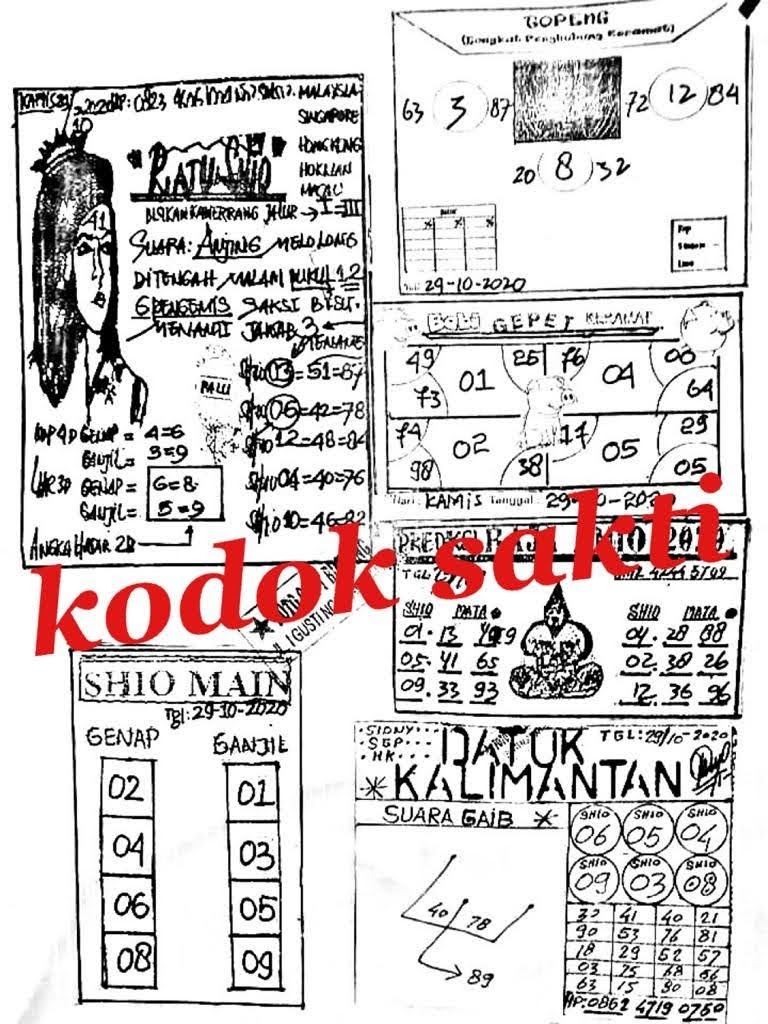 GOPENG
(Tongkat Penghubung Keramat)
63 3 87
72 12 84
20 8 32
29-10-2020
MALAYSIA
SINGAPORE
HONGKONG
HOKKIAN
MACAU
RATU SHIO
I = III
SUARA: ANJING MELOLONG
DITENGAH MALAM PUKUL 12
6 PENGEMIS SAKSI BISU
MENANTI JAWAB 3
41
Shio 03=51=87
Shio 06=42=78
Shio 12=48=84
Shio 04=40=76
Shio 10=46=82
PALU
GENAP = 4=6
GANJIL = 3=9
GENAP = 6=8
GANJIL = 5=9
ANGKA HADIR 2D
GEPET KERAMAT
49 01 25 76 04 00
73 64
74 02 17 05 29
98 38 05
Hari: KAMIS Tanggal: 29-10-2020
kodok sakti
SHIO MATA
01. 13
05. 41 65
09. 33 93
SHIO MATA
04. 28 88
02. 38 26
12. 36 96
SHIO MAIN
Tgl: 29-10-2020
GENAP GANJIL
02 01
04 03
06 05
08 09
SIDNY
SGP
HK
DATUK
KALIMANTAN
TGL: 29/10-2020
SUARA GAIB
40 78
89
SHIO 06 SHIO 05 SHIO 04
SHIO 09 SHIO 03 SHIO 08
32 41 40 21
90 53 76 81
18 29 52 57
03 75 68 66
63 15 80 08
HP: 0862 4719 0750